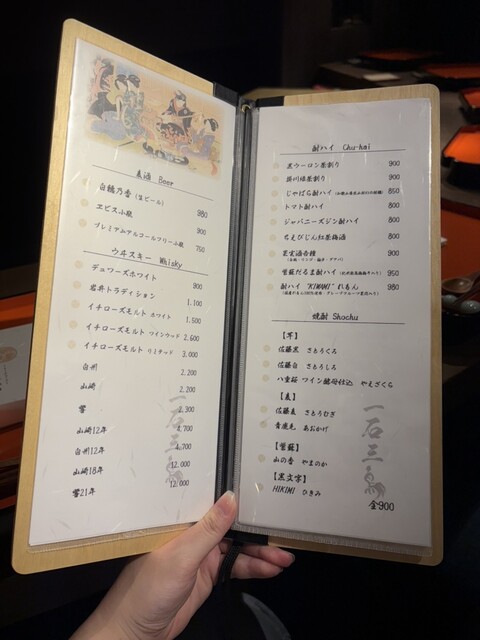 麦酒 Beer
白穂乃香 (生ビール) 980
ヱビス小瓶 900
プレミアムアルコールフリー小瓶 750
ウヰスキー Whisky
デュワーズホワイト 900
岩井トラディション 1.100
イチローズモルト ホワイト 1.500
イチローズモルト ツインウッド 2.600
イチローズモルト リミテッド 3.000
白州 2.200
山崎 2.200
響 2,300
山崎12年 4,700
白州12年 4,700
山崎18年 12.000
響21年 12.000
一石三鳥
酎ハイ Chu-hai
黒ウーロン茶割り 900
掛川緑茶割り 900
じゃばら酎ハイ 850
トマト酎ハイ 800
ジャパニーズジン酎ハイ 800
ちえびじん紅茶梅酒 800
果実酒各種 800
紫蘇だるま酎ハイ 950
酎ハイ "KIWAMI" れもん 980
焼酎 Shochu
【芋】
佐藤黒 さとうくろ
佐藤白 さとうしろ
八重桜 ワイン酵母仕込 やえざくら
【麦】
佐藤麦 さとうむぎ
青鹿毛 あおかげ
【紫蘇】
山の香 やまのか
【黒文字】
HIKIMI ひきみ
全900
一石三鳥